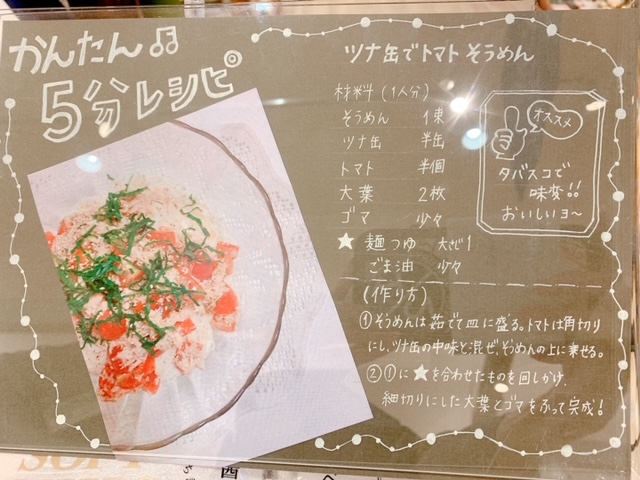 かんたん♫
5分レシピ
ツナ缶でトマトそうめん
材料（1人分）
そうめん 1束
ツナ缶 半缶
トマト 半個
大葉 2枚
ゴマ 少々
★麺つゆ 大さじ1
ごま油 少々
オススメ
タバスコで
味変!!
おいしいヨ〜
（作り方）
①そうめんは茹でて皿に盛る。トマトは角切り
にし、ツナ缶の中味と混ぜ、そうめんの上に乗せる。
②①に★を合わせたものを回しかけ、
細切りにした大葉とゴマをふって完成！